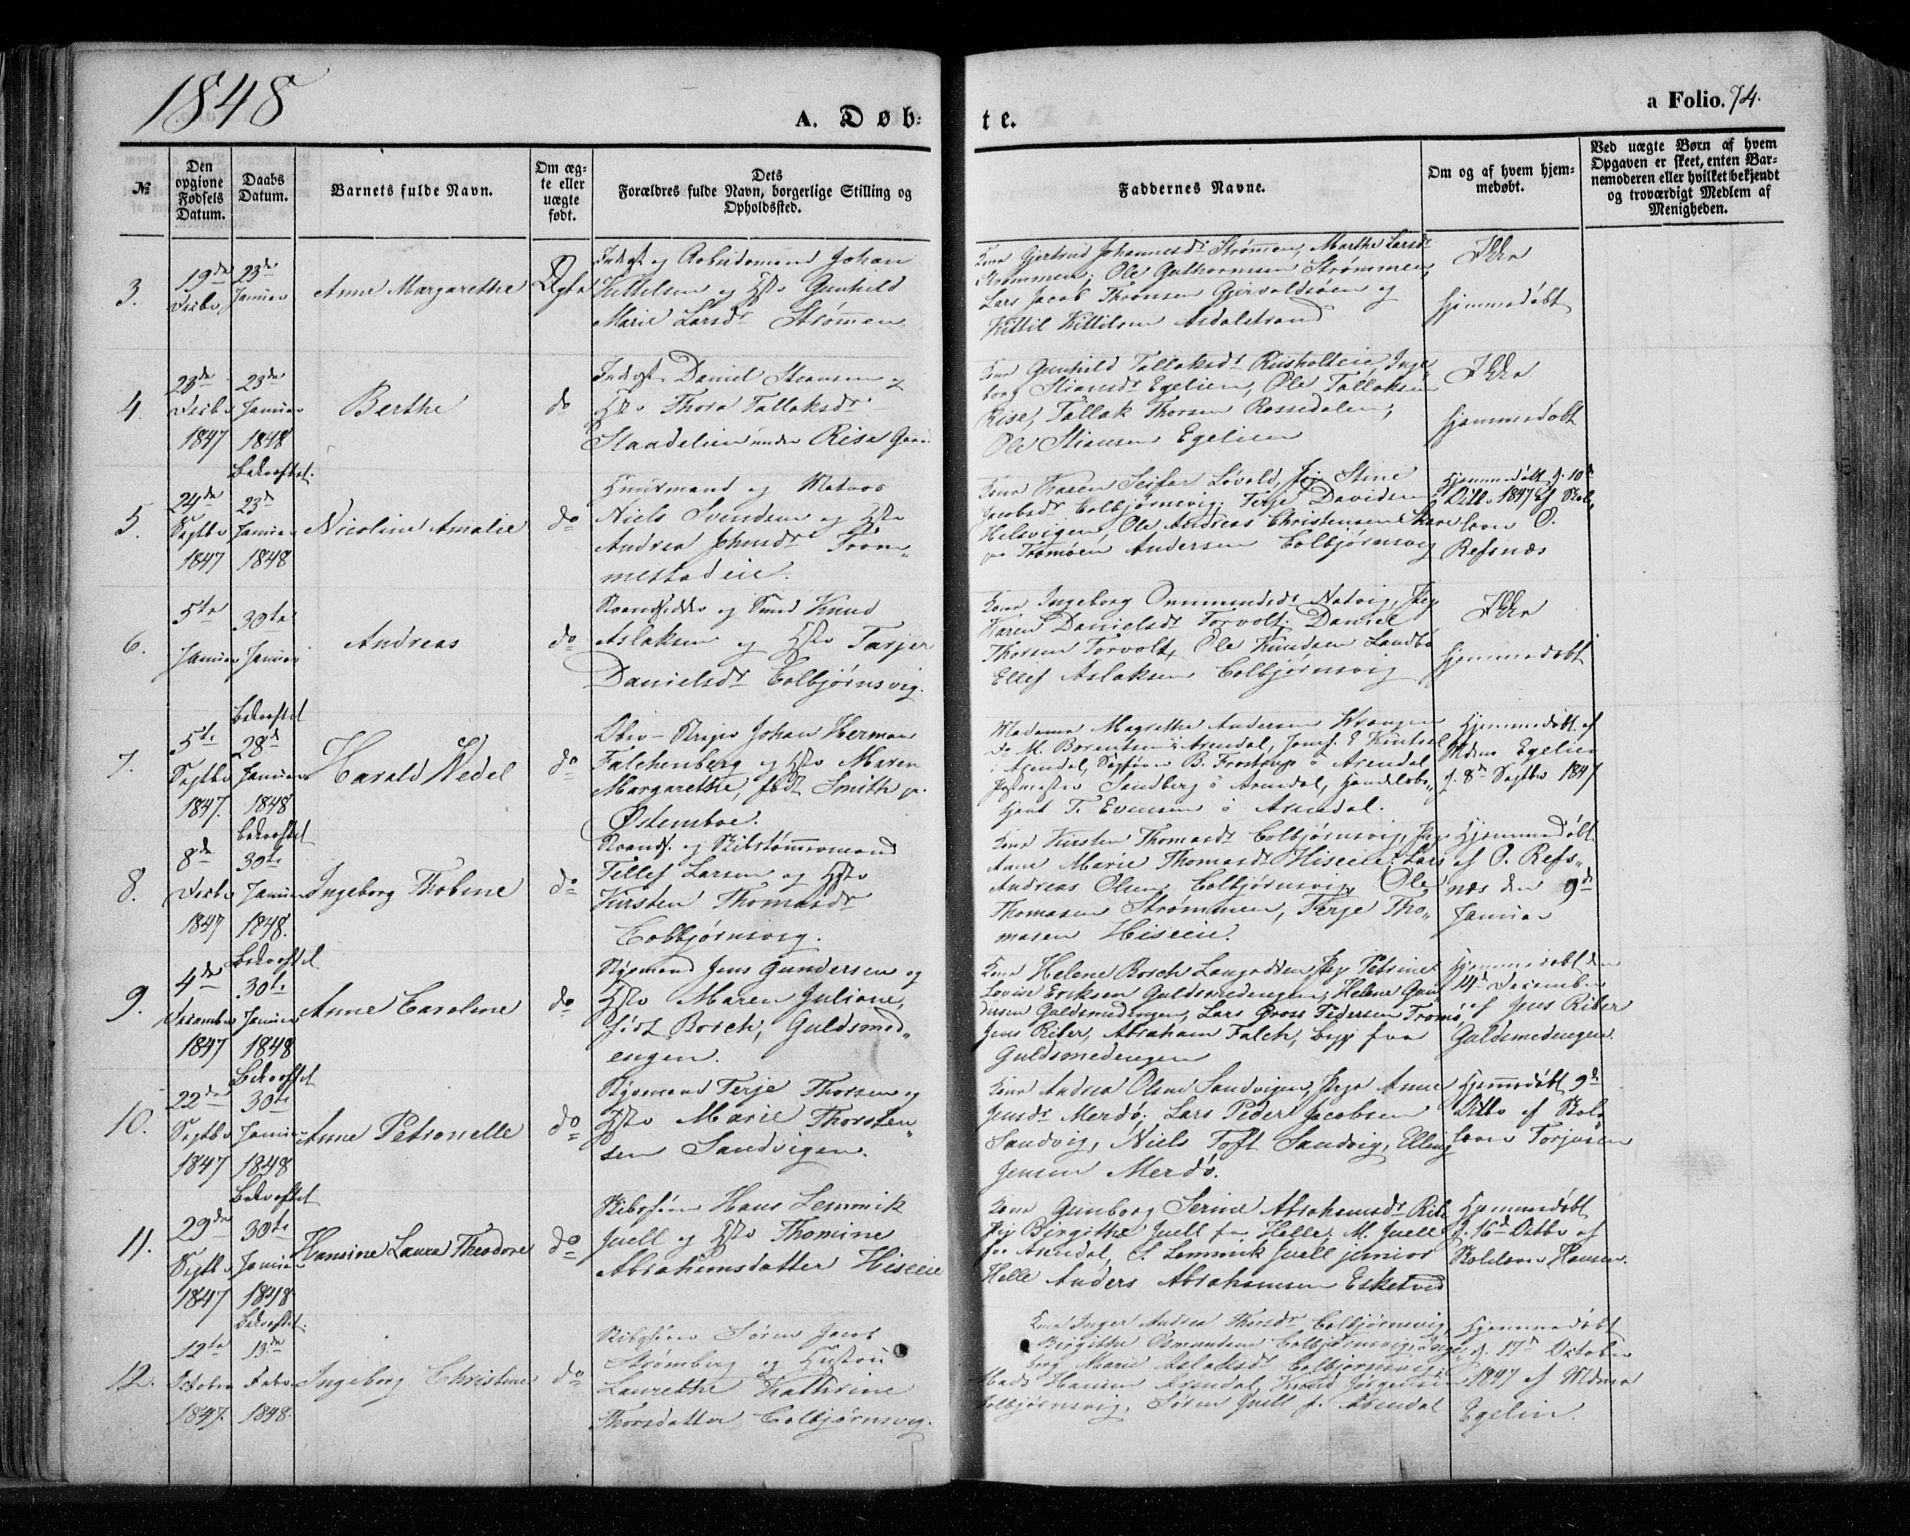 1848
A. Døb-
te.
a Folio. 74.
№
Den opgivne Fødsels Datum.
Daabs Datum.
Barnets fulde Navn.
Om ægte eller uægte født.
Dets Forældres fulde Navn, borgerlige Stilling og Opholdssted.
Faddernes Navne.
Om og af hvem hjemmedøbt.
Ved uægte Børn af hvem Opgaven er skeet, enten Barnemoderen eller hvilket bekjendt og troværdigt Medlem af Menigheden.
3.
19de Decbr
23de Januar
Anne Margarethe
Ægte
Johan
Kittilsen og Hstr Gunhild
Marie Larsdr Strømmen
Kone Gjertrud Johannesdr Strømmen, Marthe Larsdr
Strømmen, Ole Guthormsen Strømmen
Lars Jacob Thronsen Gjervoldsøen og
Kittil Kittilsen Asdalstrand
Ikke
hjemmedøbt
4.
23de Decbr 1847
23de Januar 1848
Berthe
do
Indogt Daniel Stiansen og
Hstr Thora Tallaksdr
under Rise
Kone Gunhild Tallaksdr Riisholteie, Inge
borg Stiansdr Egelien, Ole Tallaksen
Rise, Tallak Thorsen Rossedalen,
Ole Stiansen Egelien
Ikke
hjemmedøbt
5.
24de Septbr 1847
Bekræftet
23de Januar 1848
Nicoline Amalie
do
og Matros
Niels Svendsen og Hstr
Andrea Johnsdr Trom„
mestadeie.
Kone Karen Løvold, Pige Stine
Jacobsdr Colbjørnsvig, Terje Davidsen
Helsvigen, Ole Andreas Christensen
pr Tromøen Andersen Colbjørnsvig
Hjemmedøbt d. 10de
1847 af Skol„
lærer O.
Refsnæs
6.
5te Januar
30te Januar
Andreas
do
og Knud
Aslaksen og Hstr Tarjer
Danielsdr Colbjørnsvig.
Kone Ingeborg Ommundsdr Natvig, Pige
Karen Danielsdr Torvolt, Daniel
Thorsen Torvolt, Ole Knudsen Landbø
Ellef Aslaksen Colbjørnsvig
Ikke
hjemmedøbt
7.
5te Septbr 1847.
Bekræftet
28de Januar 1848
Harald Wedel
do
Johan Herman
Falchenberg og Hstr Maren
Margarethe, født Smith pr.
Østensboe.
Madame Magrethe Andersen
do M. Borentsen i Arendal, Jomf. E
i Arendal, B. Frostrup i Arendal
Postmester Sandberg i Arendal, Handelsbe„
tjent T. Evensen i Arendal.
Hjemmedøbt af
Mdme Egelien
d. 8de Septbr 1847
8.
8de Decbr 1847
Bekræftet
30te Januar 1848.
Ingeborg Thobine
do
og Skibstømmermand
Tellef Larsen og Hstr
Kirsten Thomasdr
Colbjørnsvig.
Kone Kirsten Thomasdr Colbjørnsvig, Pige
Anne Marie Thomasdr Hiseie, Lars
Andreas Olsen Colbjørnsvig, Ole
Thomasen Strømmen, Terje Tho„
masen Hiseie.
Hjemmedøbt
af O. Refs„
næs den 9de
Januar
9.
4de December 1847
Bekræftet
30te Januar 1848
Anne Caroline
do
Jens Gundersen og
Hstr Maren Juliane,
født Bosch, Guldsmed„
engen.
Kone Helene Bosch Pige Petrine
Lovise Eriksen Guldsmedengen, Helene Gun
dersen Guldsmedengen, Lars Gross Pedersen Tromø,
Jens Riber, Abraham Falch, begge fra
Guldsmedengen
Hjemmedøbt den
14de December
af Jens Riber
Guldsmedengen.
10.
22de Septbr 1847
Bekræftet
30te Januar 1848
Anne Petronelle
do
Terje Thorsen og
Hstr Marie Thorsten„
sen Sandvigen.
Kone Andrea Olsen Sandvigen, Pige Anne
Jensdr Merdø, Lars Peder Jacobsen
Sandvig, Niels Toft Sandvig, Elling
Jensen Merdø.
Hjemmedøbt 9de
af Skole
lærer Torjusen
11.
29de Septbr 1847
Bekræftet
30te Januar 1848
Hansine Laura Theodore
do
Skibsfører Hans Lemmik
Juell og Hstr Thomine
Abrahamsdatter Hiseie
Kone Gunborg Serine Abrahamsdr
Pige Birgithe Juell fra Helle, M. Juell
fra Arendal, S. Lemmik Juell junior
Helle Anders Abrahamsen Eskeved
Hjemmedøbt
d. 16de af
Skolelærer Hansen.
12.
12te October 1847.
Bekræftet
13de Febr 1848.
Ingeborg Christine
do
Skibsfører Søren Jacob
Strømberg og Hustru
Laurethe Kathrine
Thorsdatter Colbjørnsvig.
Kone Inger Andrea Thorsdr Colbjørnsvig,
Birgithe Osmundsen Colbjørnsvig, Inge
borg Marie Aslaksdr Colbjørnsvig,
Mads Hansen Arendal, Knud Jørgensen
Colbjørnsvig, Søren Juell f. Arendal
Hjemmedøbt
d. 17de October
1847 af Mdme
Egelien.